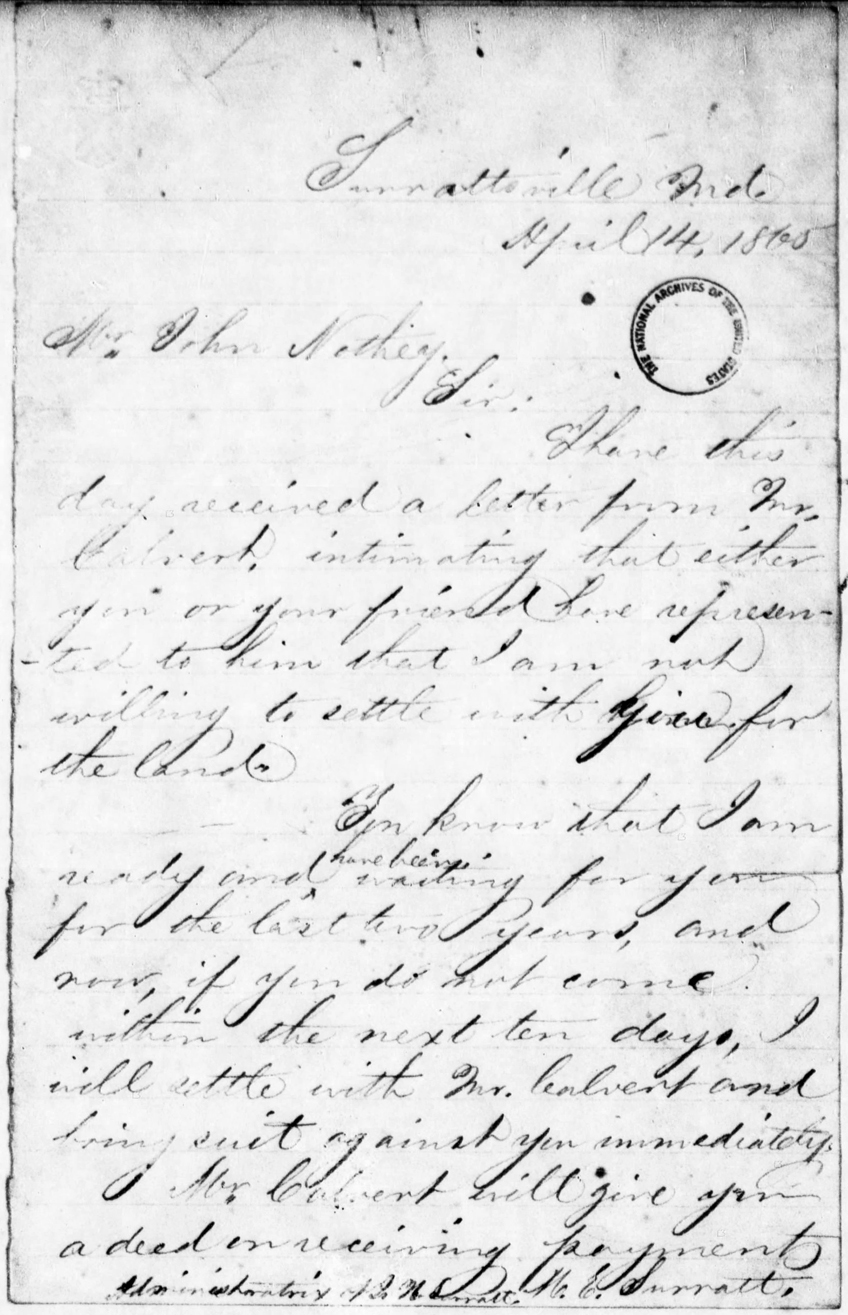 Surrattsville Md.
April 14, 1865
THE NATIONAL ARCHIVES OF THE UNITED STATES
Mr. John Nothey.
Sir:
I have this
day received a letter from Mr.
Calvert, intimating that either
you or your friend have represen-
-ted to him that I am not
willing to settle with you for
the land.
You know that I am
have been
ready and waiting for you
for the last two years, and
now, if you do not come
within the next ten days, I
will settle with Mr. Calvert and
bring suit against you immediately.
Mr. Calvert will give you
a deed on receiving payment
M. E. Surratt.
Administratrix of J. H. Surratt.